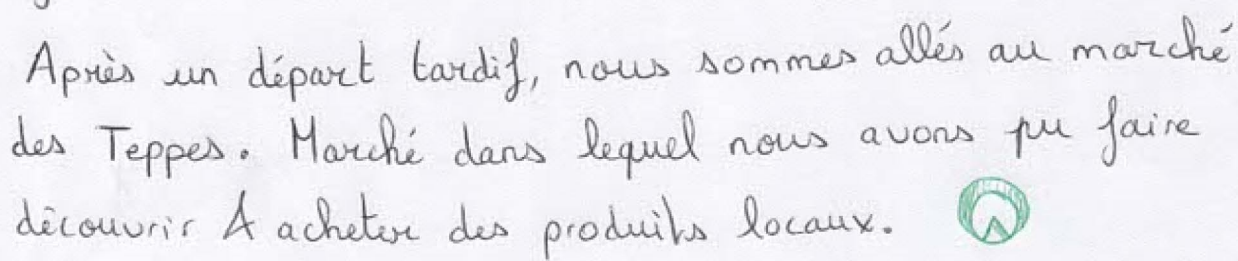 Après un départ tardif, nous sommes allés au marché
des Teppes. Marché dans lequel nous avons pu faire
découvrir & acheter des produits locaux.